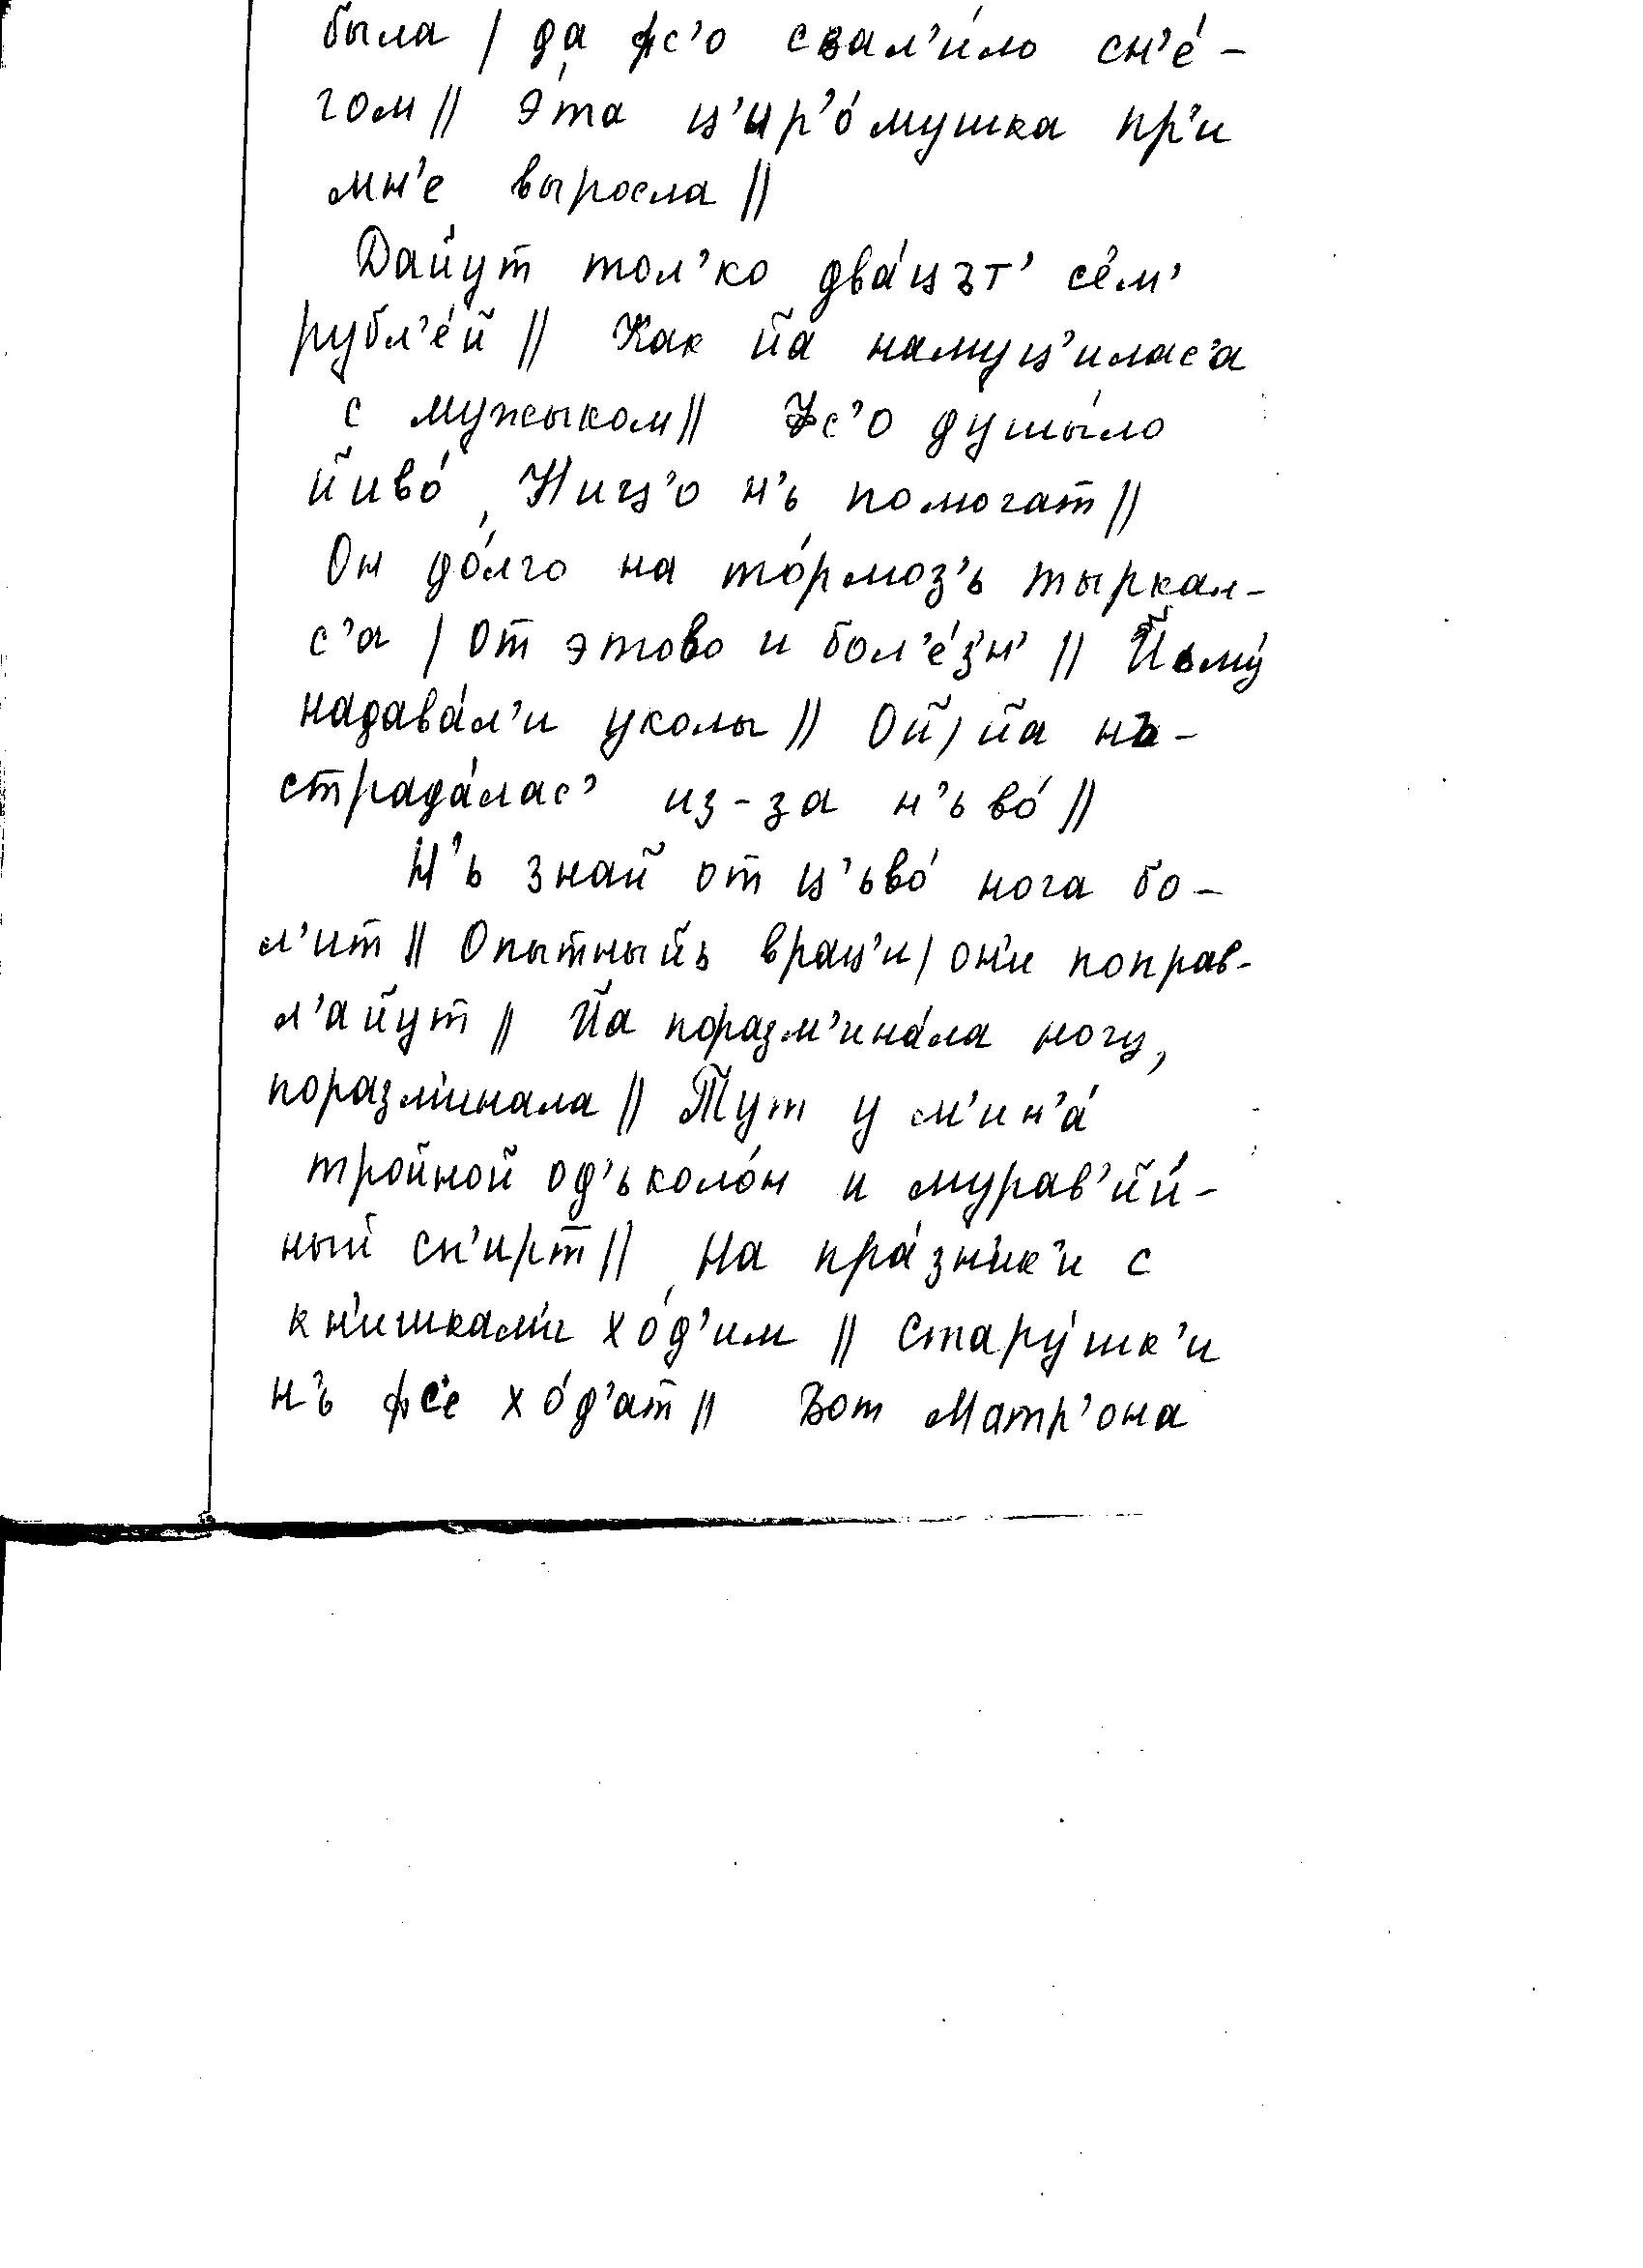 была / да фс'о свал'и́ло сн'е́-
гом // э́та ц'ир'о́мушка пр'и
мн'е выросла //
Дайут тол'ко два́цът' се́м'
рубл'е́й // Как йа намуц'илас'а
с мужыком // Фс'о душы́ло
йиво́, Ниц'о н'ь помогат //
Он до́лго на то́рмоз'ь тыркал-
с'а / от этово и бол'е́з'н' // Йьму́
надава́л'и уколы // Ой / йа нъ-
страда́лас' из-за н'ьво́ //
Н'ь знай от ц'ьво́ нога бо-
л'ит // Опытныйь врац'и / он'и поправ-
л'айут // Йа поразм'ина́ла ногу,
поразм'инала // Тут у м'ин'а́
тройной од'ьколо́н и мурав'йи́-
ный сп'ирт // На пра́зн'ик'и с
кн'ишкам'и хо́д'им // Стару́шк'и
н'ь фс'е хо́д'ат // Вот Матр'она